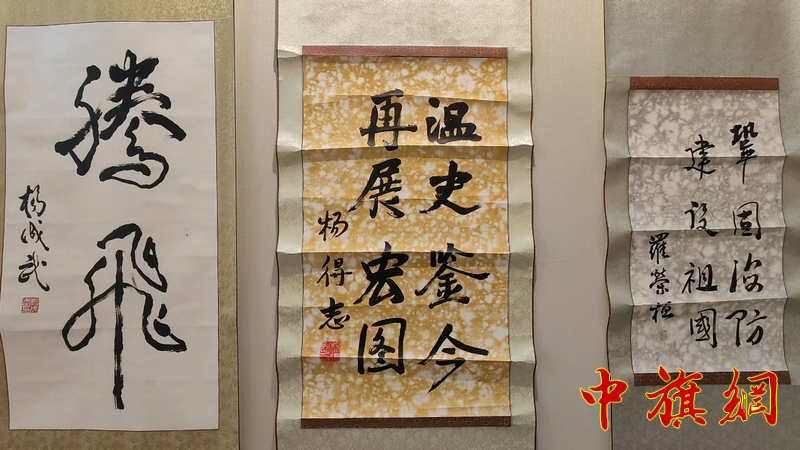 騰飛
杨成武
温史鉴今
再展宏图
杨得志
鞏固海防
建设祖國
羅榮桓
中旗網